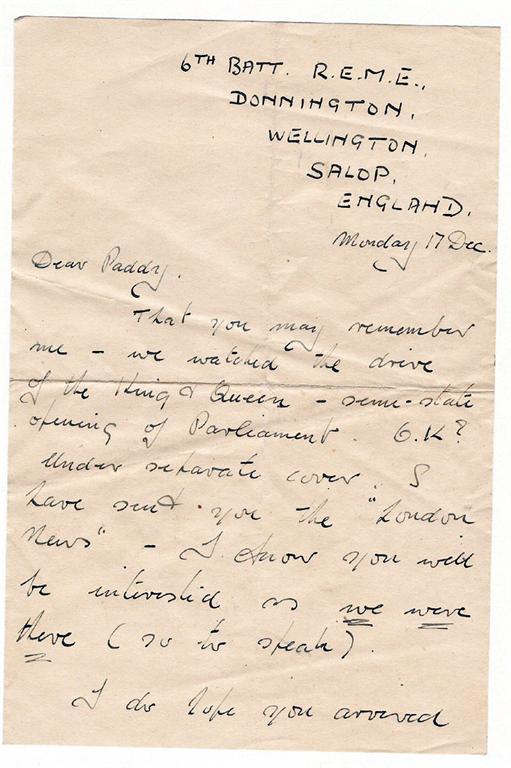 6TH BATT. R.E.M.E.,
DONNINGTON,
WELLINGTON,
SALOP,
ENGLAND.
Monday 17 Dec.
Dear Paddy,
That you may remember
me – we watched the drive
of the King & Queen – semi-state
opening of Parliament. O.K?
Under separate cover, I
have sent you the "London
News" – I know you will
be interested as we were
there (so to speak).
I do hope you arrived